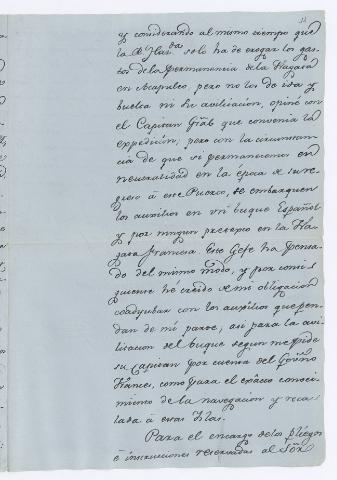 y considerando al mismo tiempo que
la R.l Haz.da solo ha de erogar los gas-
tos de la permanencia de la Fragata
en Acapulco, pero no los de ida y
buelta ni de avilitacion, opinó con
el Capitan Grãl que convenia la
expedicion; pero con la circunstan-
cia de que si permanecemos en
neutralidad en la época de su re-
greso á este Puerto, se embarquen
los auxilios en un buque Español
y por ningun pretexto en la Fra-
gata francesa. Este Gefe ha pensa-
do del mismo modo, y por consi-
guiente hé creido de mi obligacion
coadyubar con los auxilios que pen-
dan de mi parte, asi para la avi-
litacion del buque segun me pide
su Capitan por cuenta del Govño
Frances, como para el exâcto conoci-
miento de la navegacion y reca-
lada á estas Yslas.
Para el encargo de los pliegos
é instrucciones reservadas al Sõr